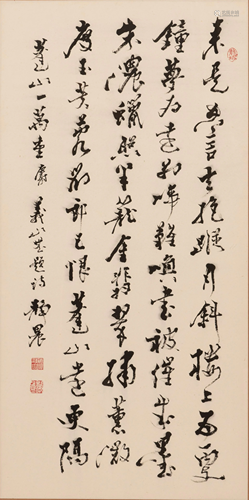 来是空言去絶踪月斜樓上五更
鐘夢为遠别啼難唤書被催成墨
未濃蠟照半籠金翡翠繡薰微
度玉芙蓉劉郎已恨蓬山遠更隔
蓬山一萬重 麝 義山無題詩